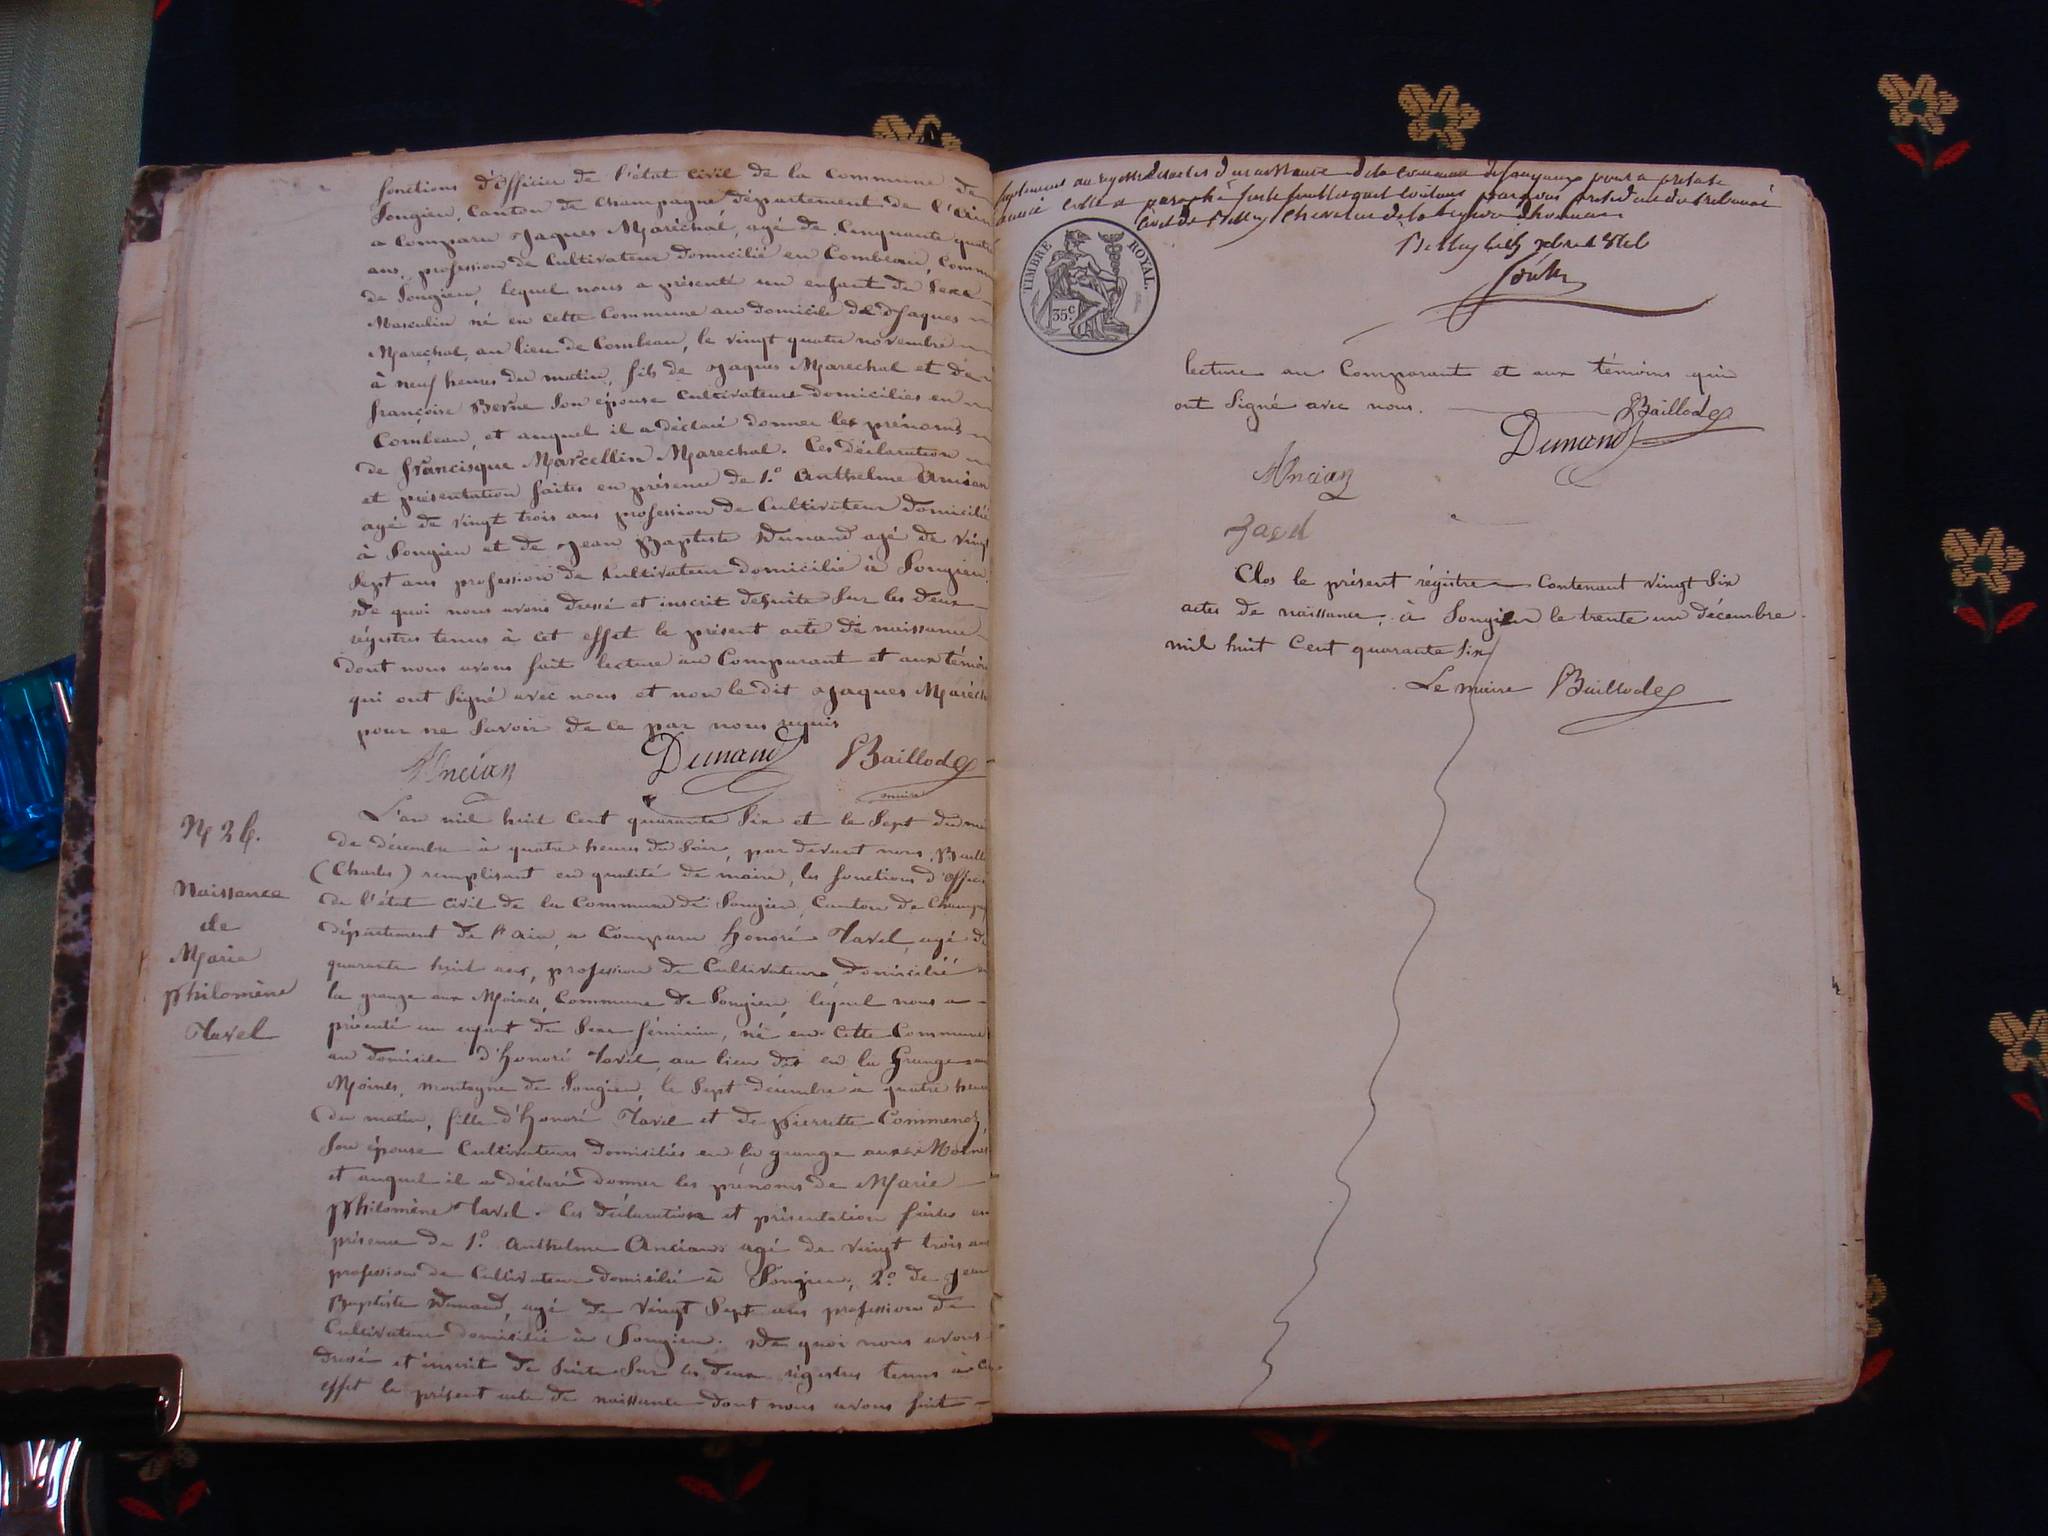 fonctions d'officier de l'état civil de la commune de
Songieu, Canton de Champagne département de l'ain
a comparu Jaques Maréchal, agé de Cinquante quatre
ans, profession de Cultivateur domicilié en Combeau, Comm
de Songieu, lequel nous a présenté un enfant du Sexe
Masculin né en cette Commune au domicile de Jaques
Marechal, au lieu de Combeau, le vingt quatre novembre
à neuf heures du matin, fils de Jaques Marechal et de
françoise Berne Son épouse Cultivateurs domiciliés en
Combeau, et auquel il a déclaré donner les prénoms
de francisque Marcellin Marechal. Ces déclaration
et présentation faites en présence de 1.° Anthelme Ancian
agé de vingt trois ans profession de Cultivateur domicilié
à Songieu et de Jean Baptiste Dunand agé de vingt
Sept ans profession de Cultivateur domicilié à Songieu.
De quoi nous avons dressé et inscrit desuite Sur les deux
régistres tenus à cet effet le présent acte de naissance
dont nous avons fait lecture au Comparant et aux témoi
qui ont Signé avec nous et non le dit Jaques Maréch
pour ne Savoir de ce par nous requis
Ancian Dunand Baillod
maire
N 26.
Naissance
de
Marie
Philomène
Tavel
L'an mil huit Cent quarante Six et le Sept du m
de décembre à quatre heures du Soir, par devant nous, Baill
(Charles) remplissant en qualité de maire, les fonctions d'offici
de l'état civil de la Commune de Songieu, Canton de Champag
département de l'ain, a Comparu honoré Tavel, agé de
quarante huit ans, profession de Cultivateur domicilié en
la grange aux Moines, Commune de Songieu, lequel nous a
présenté un enfant du Sexe féminin, né en cette Commune
au domicile d'honoré Tavel, au lieu dit en la Grange au
Moines, montagne de Songieu, le Sept décembre à quatre heur
du matin, fille d'honoré Tavel et de pierrette Commenoz,
Son épouse Cultivateurs domiciliés en la grange aux Moines
et auquel il a déclaré donner les prénoms de Marie
Philomène Tavel. Ces déclaration et présentation faites en
présence de 1.° Anthelme Ancian agé de vingt trois ans
profession de Cultivateur domicilié à Songieu, 2.° de Jean
Baptiste Dunand, agé de vingt Sept ans profession de
Cultivateur domicilié à Songieu. De quoi nous avons
dressé et inscrit de Suite Sur les deux régistres tenus à cet
effet le présent acte de naissance dont nous avons fait
de la commune de
TIMBRE ROYAL.
35 c
lecture au Comparant et aux témoins qui
ont Signé avec nous. Baillod
Dunand
Ancian
Clos le présent régistre contenant vingt Six
actes de naissance, à Songieu le trente un décembre
mil huit Cent quarante Six
Le maire Baillod